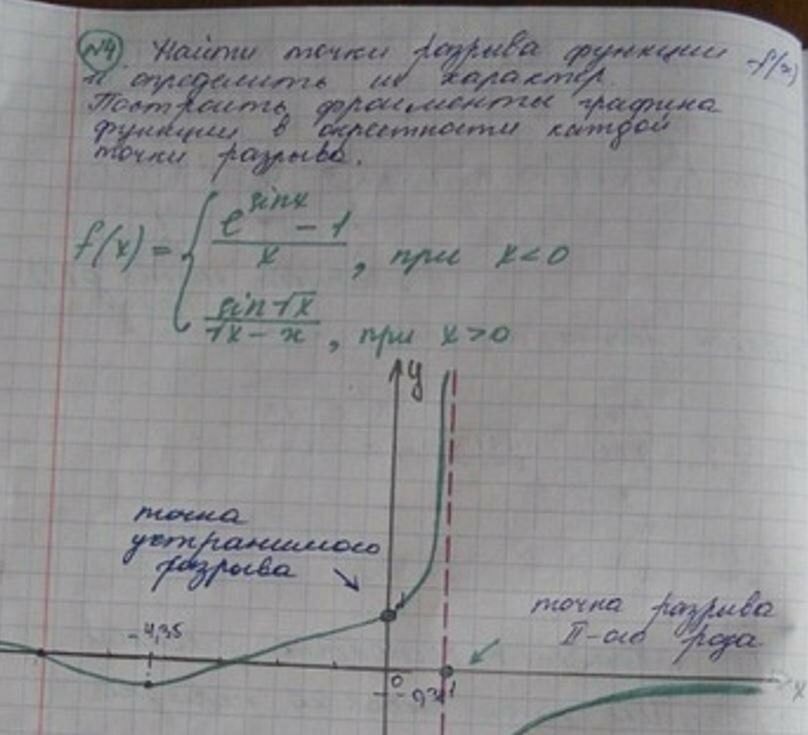 №4 Найти точки разрыва функции f(x)
и определить их характер.
Построить фрагменты графика
функции в окрестности каждой
точки разрыва.
f(x) = { (e^sinx - 1)/x , при x<0
sin√x/(√x - x) , при x>0
y
точка
устранимого
разрыва
1
точка разрыва
II-ого рода
-4,35
0
1
x